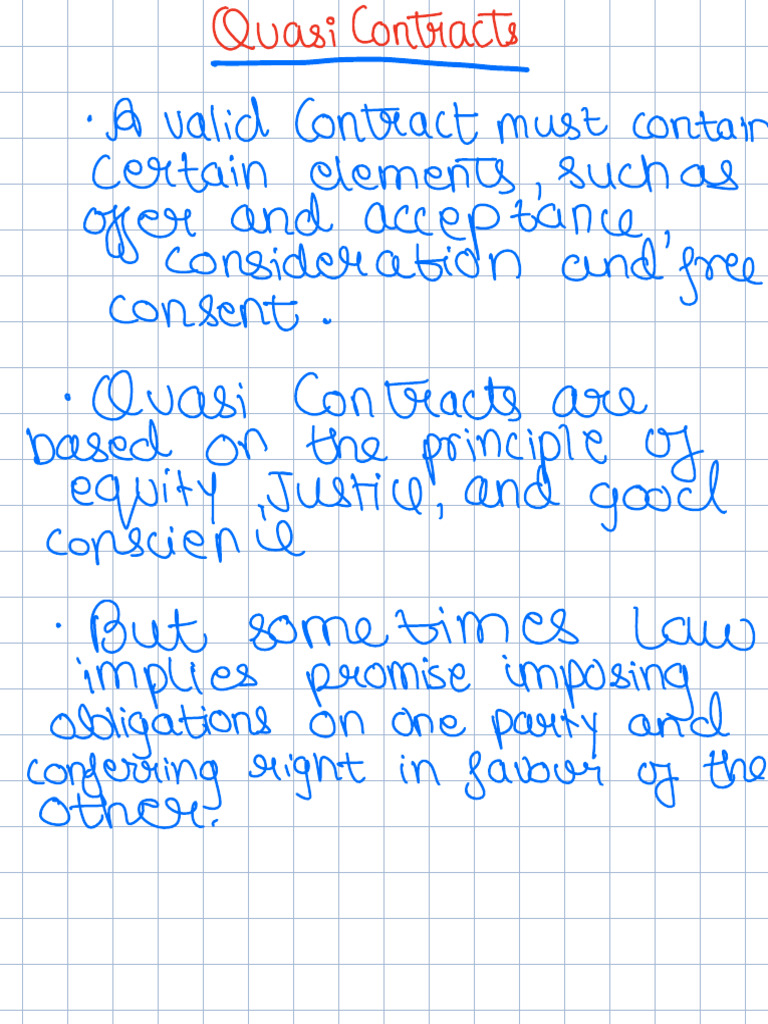 Quasi Contracts
· A valid Contract must contain
certain elements, such as
offer and acceptance,
consideration and free
consent.
· Quasi Contracts are
based on the principle of
equity, Justice, and good
conscience
· But sometimes law
implies promise imposing
obligations on one party and
conferring right in favour of the
other.